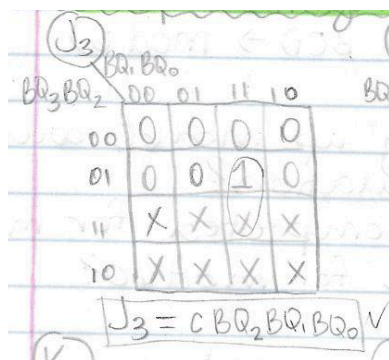 J3
BQ1 BQ0
BQ3 BQ2 00 01 11 10 BQ
00 0 0 0 0
01 0 0 1 0
11 X X X X
10 X X X X
J3 = C BQ2 BQ1 BQ0 √